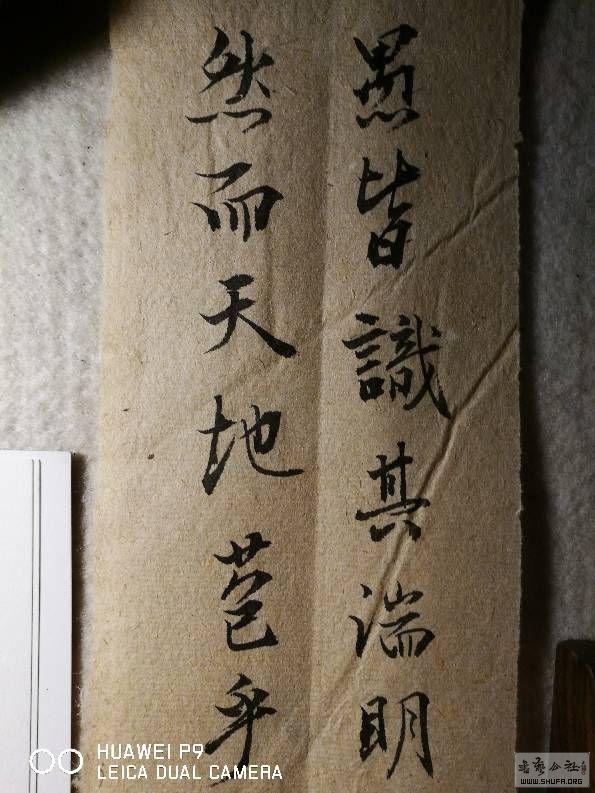 愚皆識其湍明
然而天地苞乎
HUAWEI P9
LEICA DUAL CAMERA
WWW.SHUFA.ORG